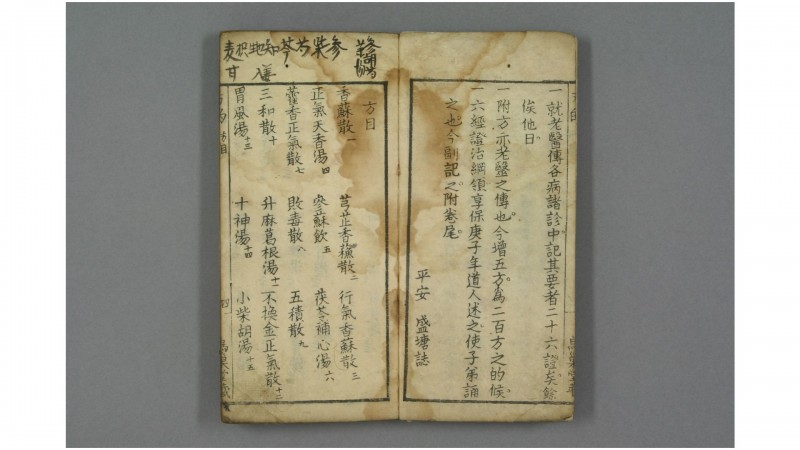 一就老醫傳各病諸診中記其要者二十六證矣餘
俟他日
一附方亦老醫之傳也今增五方為二百方之的候
一六經證治綱領享保庚子年道人述之使子弟誦
之也今副記之附卷尾
平安 盛塘誌
方目
香蘇散一 芎芷香蘇散二 行氣香蘇散三
正氣天香湯四 參蘇飲五 茯苓補心湯六
藿香正氣散七 敗毒散八 五積散九
三和散十 升麻葛根湯十一 不換金正氣散十二
胃風湯十三 十神湯十四 小柴胡湯十五
參柴芍芩知地枳麦
甘